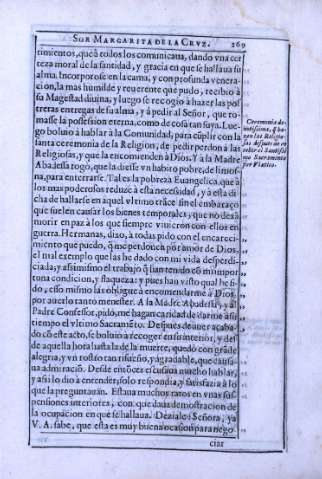 SOR MARGARITA DE LA CRVZ. 269
timientos, que à todos los comunicaua, dando vna cer
teza moral de la santidad, y gracia en que se hallaua su
alma. Incorporose en la cama, y con profunda venera-
cion, la mas humilde y reuerente que pudo, recibio à
su Magestad diuina, y luego se recogio à hazer las pos
treras entregas de su alma, y à pedir al Señor, que to-
masse la possession eterna, como de cosa tan suya. Lue-
go boluio à hablar à la Comunidad, para cũplir con la
santa ceremonia de la Religion, de pedir perdon à las
Religiosas, y que la encomienden à Dios. Y à la Madre
Abadessa rogò, que la diesse vn habito pobre, de limos-
na, para enterrarse. Tal es la pobreza Euangelica, que à
los mas poderosos reduze à esta necesidad, y à esta di
cha de hallarse en aquel vltimo trãce sin el embaraço
que suelen causar los bienes temporales, que no dexã
morir en paz à los que siempre viuieron con ellos en
guerra. Hermanas, dixo, à todas pido con el encareci-
miento que puedo, q̃ me perdonen por amor de Dios,
el mal exemplo que las he dado con mi vida desperdi-
ciada; y assimismo el trabajo q̃ han tenido cõ mi impor
tuna condicion, y flaqueza: y pues han visto qual he si-
do, esso mismo las obligue à encomendarme à Dios,
por auerlo tanto menester. A la Madre Abadessa, y al
Padre Confessor, pido, me hagan caridad de darme à su
tiempo el vltimo Sacramẽto. Despues de auer acaba-
do cõ este acto, se boluio à recoger en su interior, y des
de aquella hora hasta la de la muerte, quedò con grãde
alegria, y vn rostro tan risueño, y agradable, que causa-
ua admiraciõ. Desde entõces escusaua mucho hablar,
y assi lo dio à entender; solo respondia, y satisfazia à lo
que la preguntauan. Estaua muchos ratos en vnas sus-
pensiones interiores, con que daua demostracion de
la ocupacion en que se hallaua. Deziale: Señora, ya
V. A. sabe, que esta es muy buena ocasion para nego-
ciar
Ceremonia de-
uotissima, q̃ ha-
zen las Religio-
sas despues de re
cebir el Santissi
mo Sacramento
por Viatico.